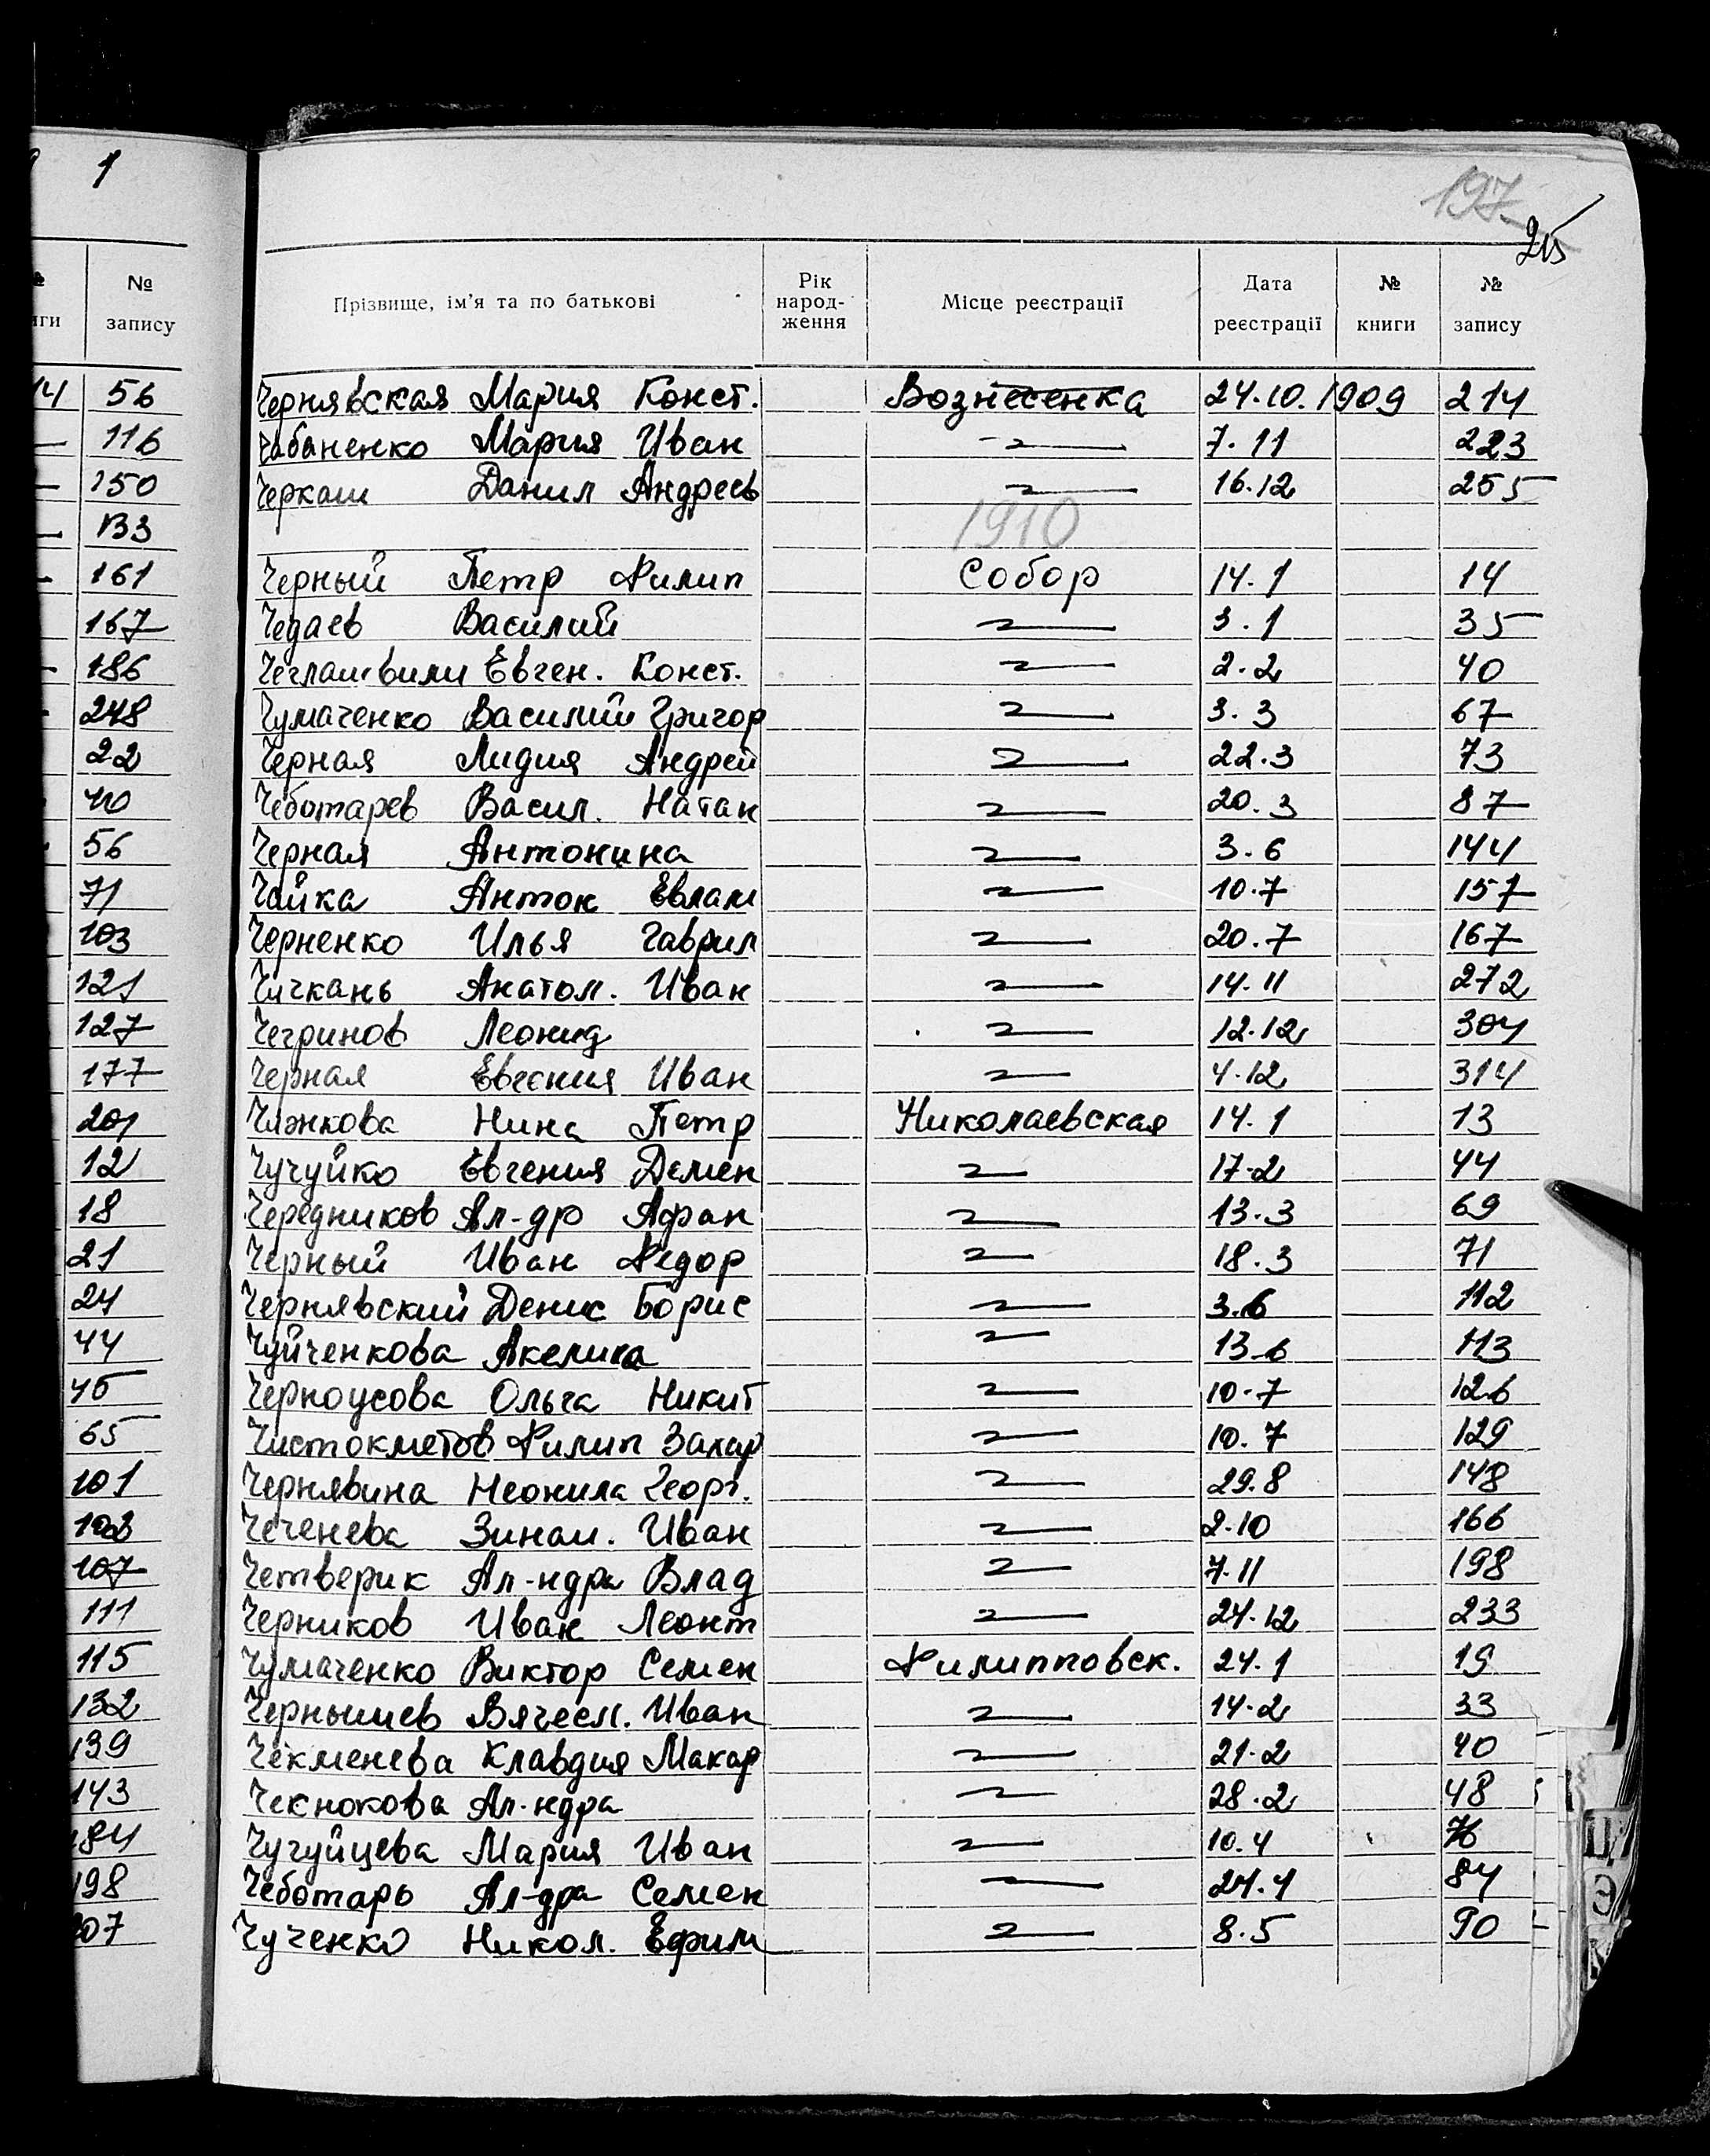 1
№ запису
56
116
150
133
161
167
186
248
22
40
56
71
103
121
127
177
201
12
18
21
24
44
45
65
101
103
107
111
115
132
139
143
184
198
207
197
215
Прізвище, ім'я та по батькові Рік народ-ження Місце реєстрації Дата реєстрації № книги № запису
Чернявская Мария Конст. Вознесенка 24.10.1909 214
Чабаненко Мария Иван 7.11 223
Черкаш Данил Андреев 16.12 255
1910
Черный Петр Филип Собор 14.1 14
Чедаев Василий 3.1 35
Чеглашвили Евген. Конст. 2.2 40
Чумаченко Василий Григор 3.3 67
Черная Лидия Андрей 22.3 73
Чеботарев Васил. Натан 20.3 87
Черная Антонина 3.6 144
Чайка Антон Евлам 10.7 157
Черненко Илья Гаврил 20.7 167
Чичкань Анатол. Иван 14.11 272
Чегринов Леонид 12.12 304
Черная Евгения Иван 4.12 314
Чижкова Нина Петр Николаевская 14.1 13
Чучуйко Евгения Демен 17.2 44
Чередников Ал-др Афан 13.3 69
Черный Иван Федор 18.3 71
Чернявский Денис Борис 3.6 112
Чуйченкова Акелина 13.6 113
Черноусова Ольга Никит 10.7 126
Чистокметов Филип Захар 10.7 129
Чернявина Неонила Георг. 29.8 148
Чеченева Зинаи. Иван 2.10 166
Четверик Ал-ндра Влад 7.11 198
Черников Иван Леонт 24.12 233
Чумаченко Виктор Семен Филипповск. 24.1 19
Чернышев Вячесл. Иван 14.2 33
Чекменева Клавдия Макар 21.2 40
Чекнокова Ал-ндра 28.2 48
Чугуйцева Мария Иван 10.4 76
Чеботарь Ал-дра Семен 24.4 84
Чученко Никол. Ефим 8.5 90